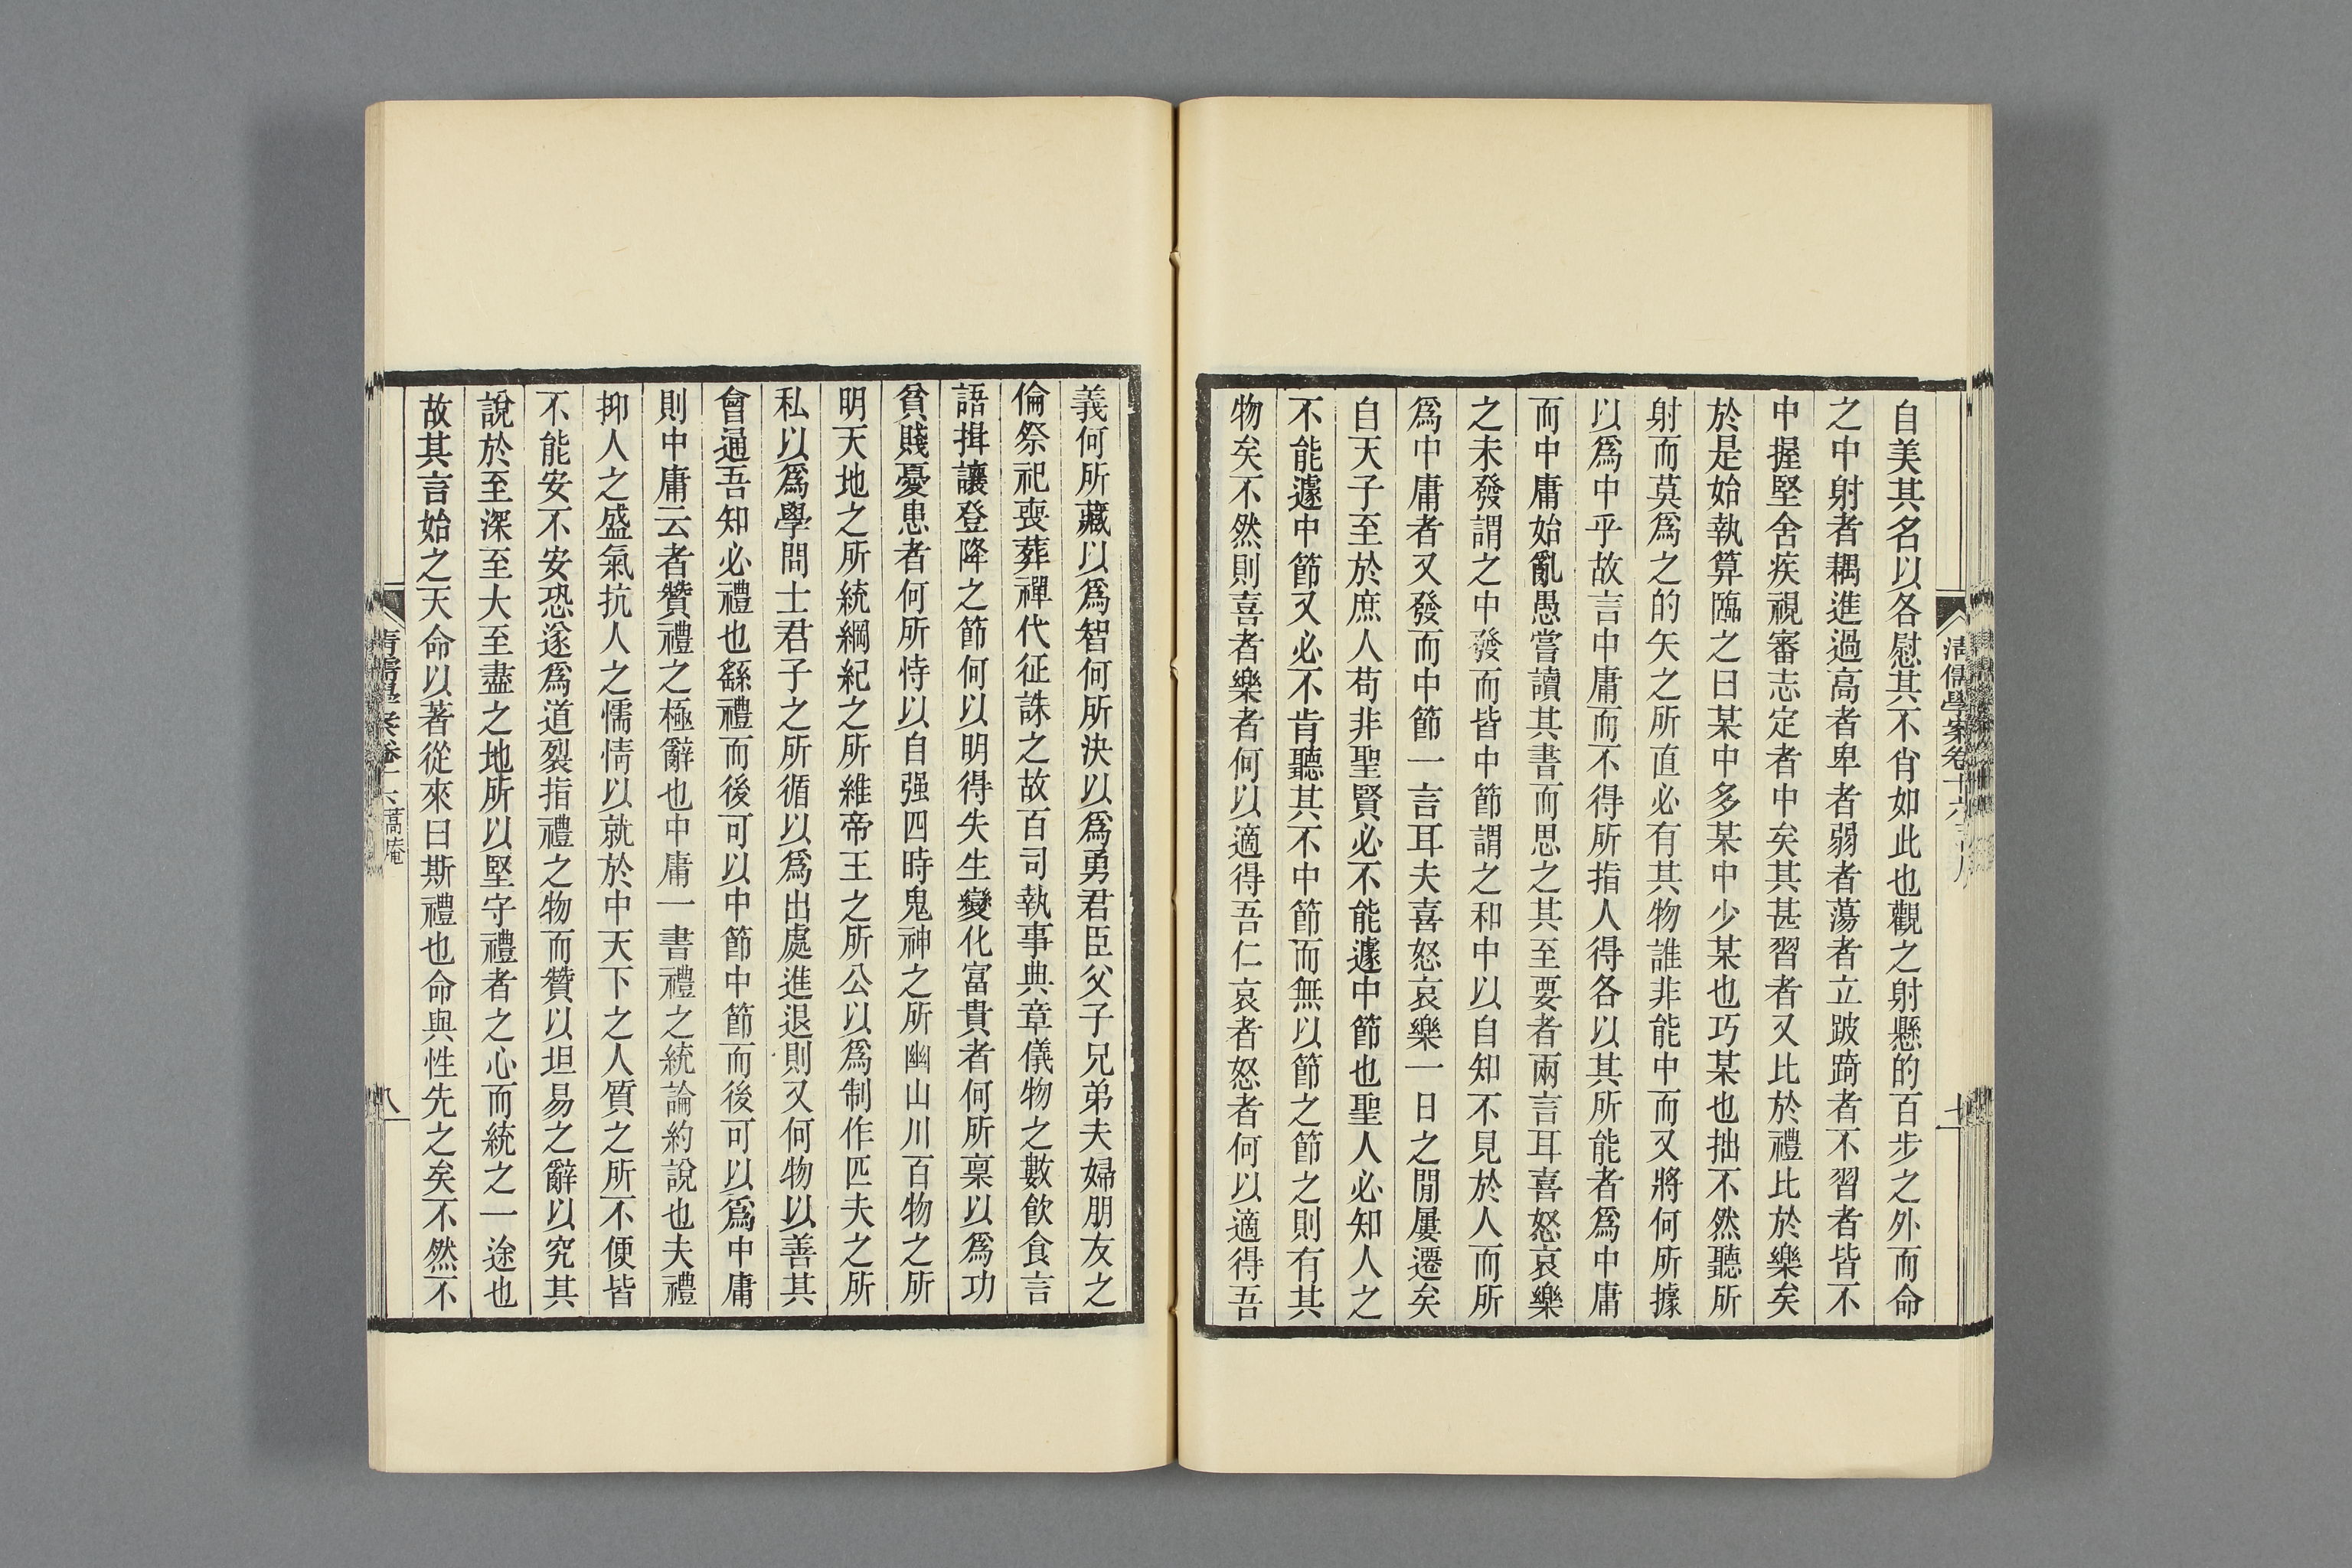 自美其名以各慰其不肖如此也觀之射懸的百步之外而命
之中射者耦進過高者卑者弱者蕩者立跛踦者不習者皆不
中握堅舍疾視審志定者中矣其甚習者又比於禮比於樂矣
於是始執算臨之曰某中多某中少某也巧某也拙不然聽所
射而莫爲之的矢之所直必有其物誰非能中而又將何所據
以爲中乎故言中庸而不得所指人得各以其所能者爲中庸
而中庸始亂愚嘗讀其書而思之其至要者兩言耳喜怒哀樂
之未發謂之中發而皆中節謂之和中以自知不見於人而所
爲中庸者又發而中節一言耳夫喜怒哀樂一日之閒屢遷矣
自天子至於庶人苟非聖賢必不能遽中節也聖人必知人之
不能遽中節又必不肯聽其不中節而無以節之節之則有其
物矣不然則喜者樂者何以適得吾仁哀者怒者何以適得吾
清儒學案卷十六
義何所藏以爲智何所決以爲勇君臣父子兄弟夫婦朋友之
倫祭祀喪葬禪代征誅之故百司執事典章儀物之數飲食言
語揖讓登降之節何以明得失生變化富貴者何所稟以爲功
貧賤憂患者何所恃以自强四時鬼神之所幽山川百物之所
明天地之所統綱紀之所維帝王之所公以爲制作匹夫之所
私以爲學問士君子之所循以爲出處進退則又何物以善其
會通吾知必禮也繇禮而後可以中節中節而後可以爲中庸
則中庸云者贊禮之極辭也中庸一書禮之統論約說也夫禮
抑人之盛氣抗人之懦情以就於中天下之人質之所不便皆
不能安不安恐遂爲道裂指禮之物而贊以坦易之辭以究其
說於至深至大至盡之地所以堅守禮者之心而統之一途也
故其言始之天命以著從來曰斯禮也命與性先之矣不然不
清儒學案卷十六 蒿庵
八